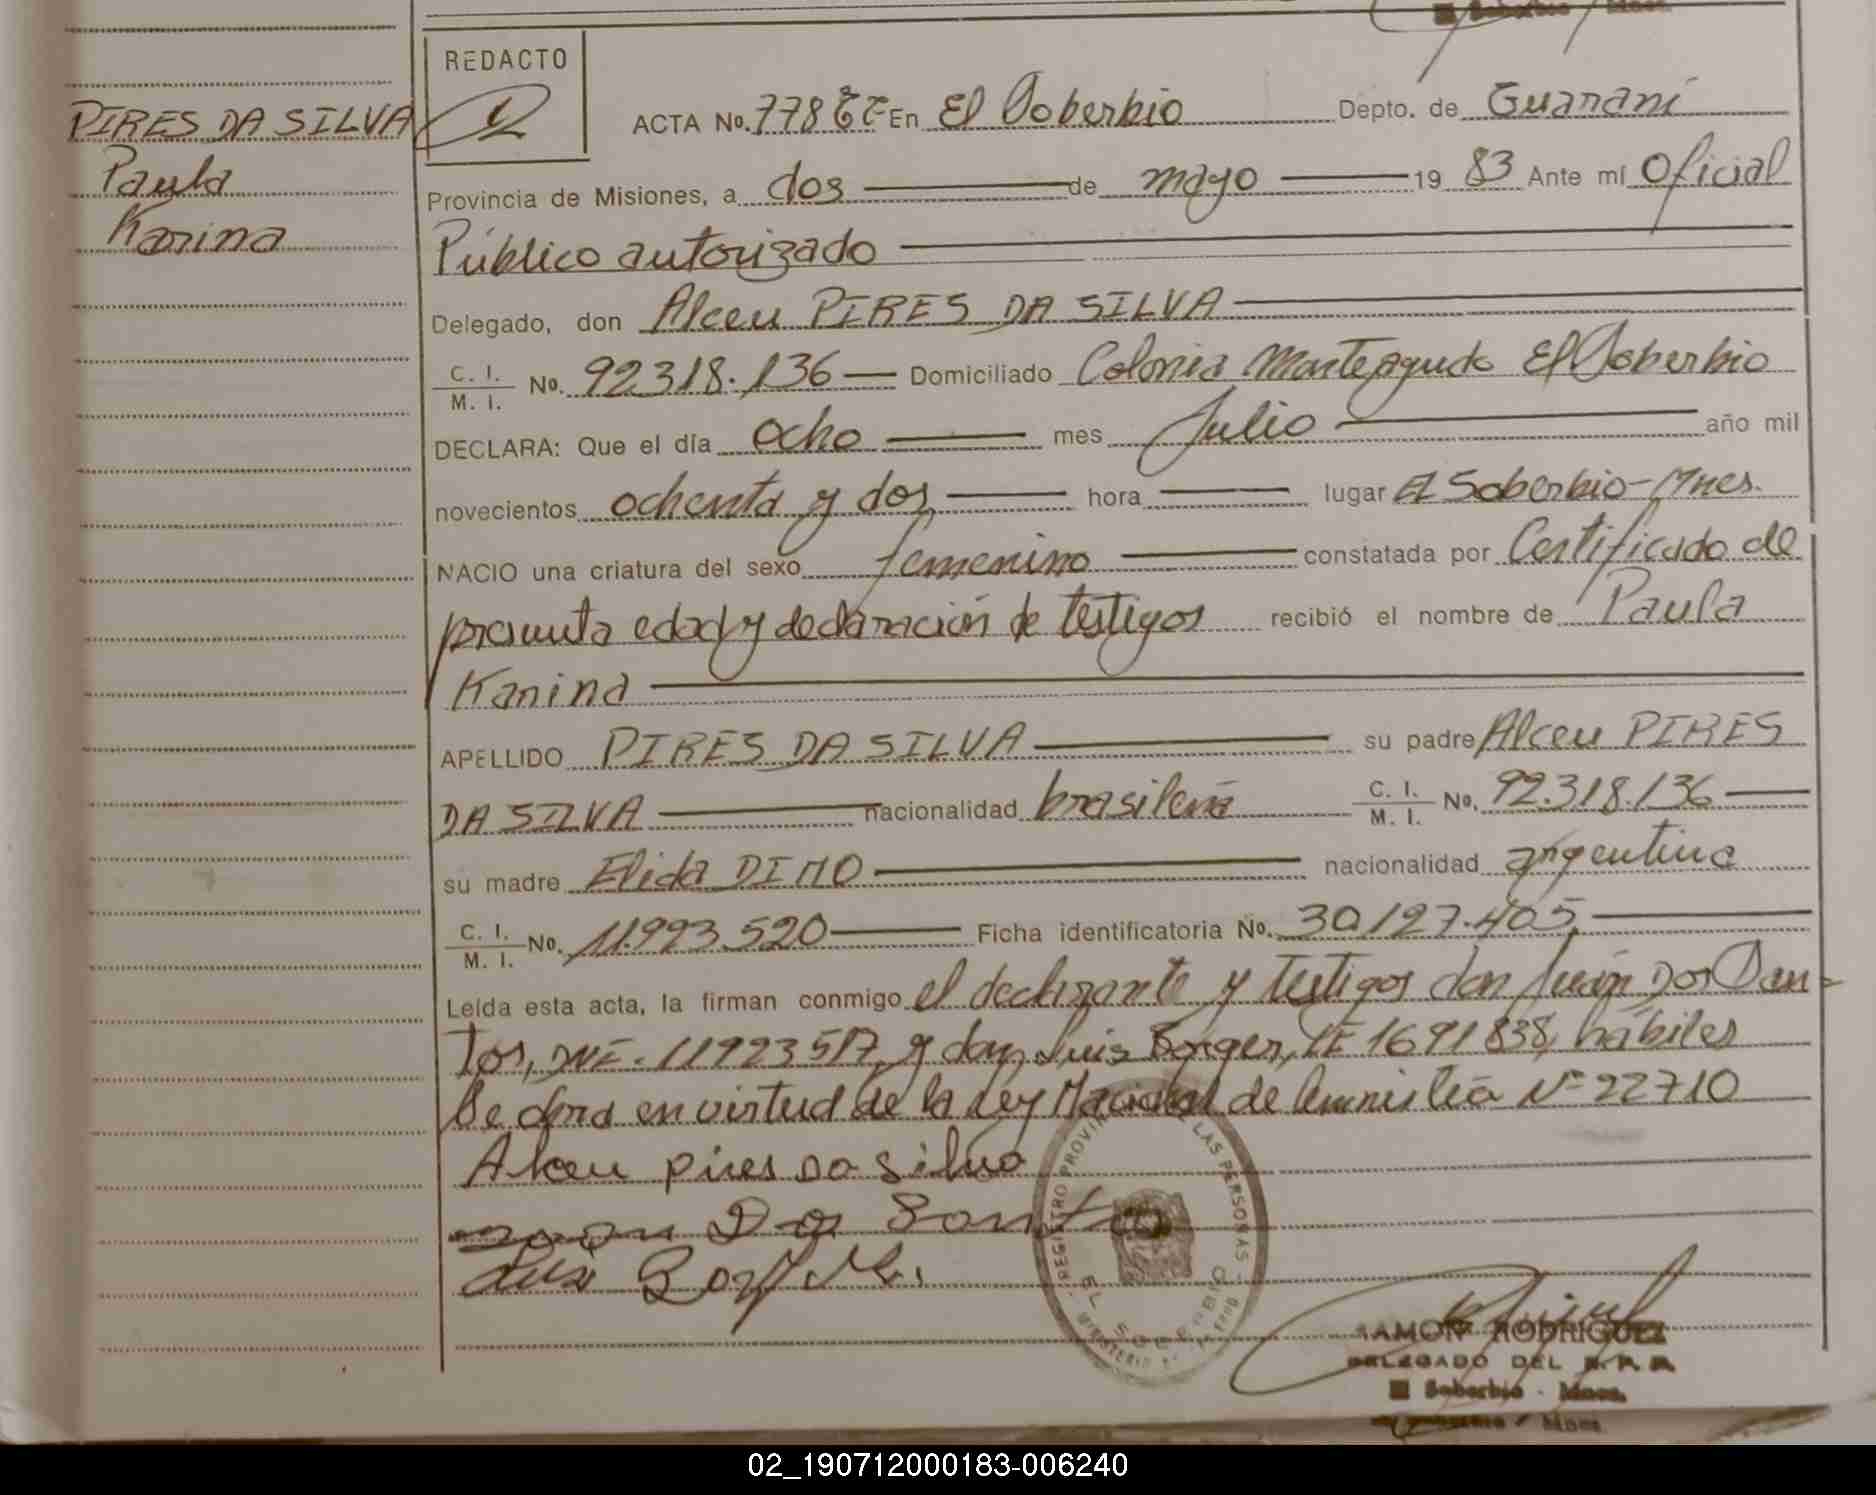 PIRES DA SILVA
Paula
Karina
REDACTO
ACTA No. 778 En El Soberbio Depto. de Guaraní
Provincia de Misiones, a dos de mayo 19 83 Ante mí Oficial
Público autorizado
Delegado, don Alceu PIRES DA SILVA
C. I. M. I. No. 92.318.136 Domiciliado Colonia Monteagudo El Soberbio
DECLARA: Que el día ocho mes Julio año mil
novecientos ochenta y dos hora lugar El Soberbio-Mnes.
NACIO una criatura del sexo femenino constatada por Certificado de
presunta edad y declaración de testigos recibió el nombre de Paula
Karina
APELLIDO PIRES DA SILVA su padre Alceu PIRES
DA SILVA nacionalidad brasileña C. I. M. I. No. 92.318.136
su madre Elida DIMO nacionalidad argentina
C. I. M. I. No. 11.923.520 Ficha identificatoria No. 30.127.405
Leída esta acta, la firman conmigo el declarante y testigos don Juán Dos San=
tos, DNI. 11923517 y don Luis Borger, LE 1691838, hábiles
Se obra en virtud de la Ley Nacional de Amnistía Nº 22710
Alceu pires da silva
Dos Santos
Luis
REGISTRO PROVINCIAL DE LAS PERSONAS
EL SOBERBIO
RAMON RODRIGUEZ
DELEGADO DEL R. P. P.
El Soberbio - Mnes.
02_190712000183-006240